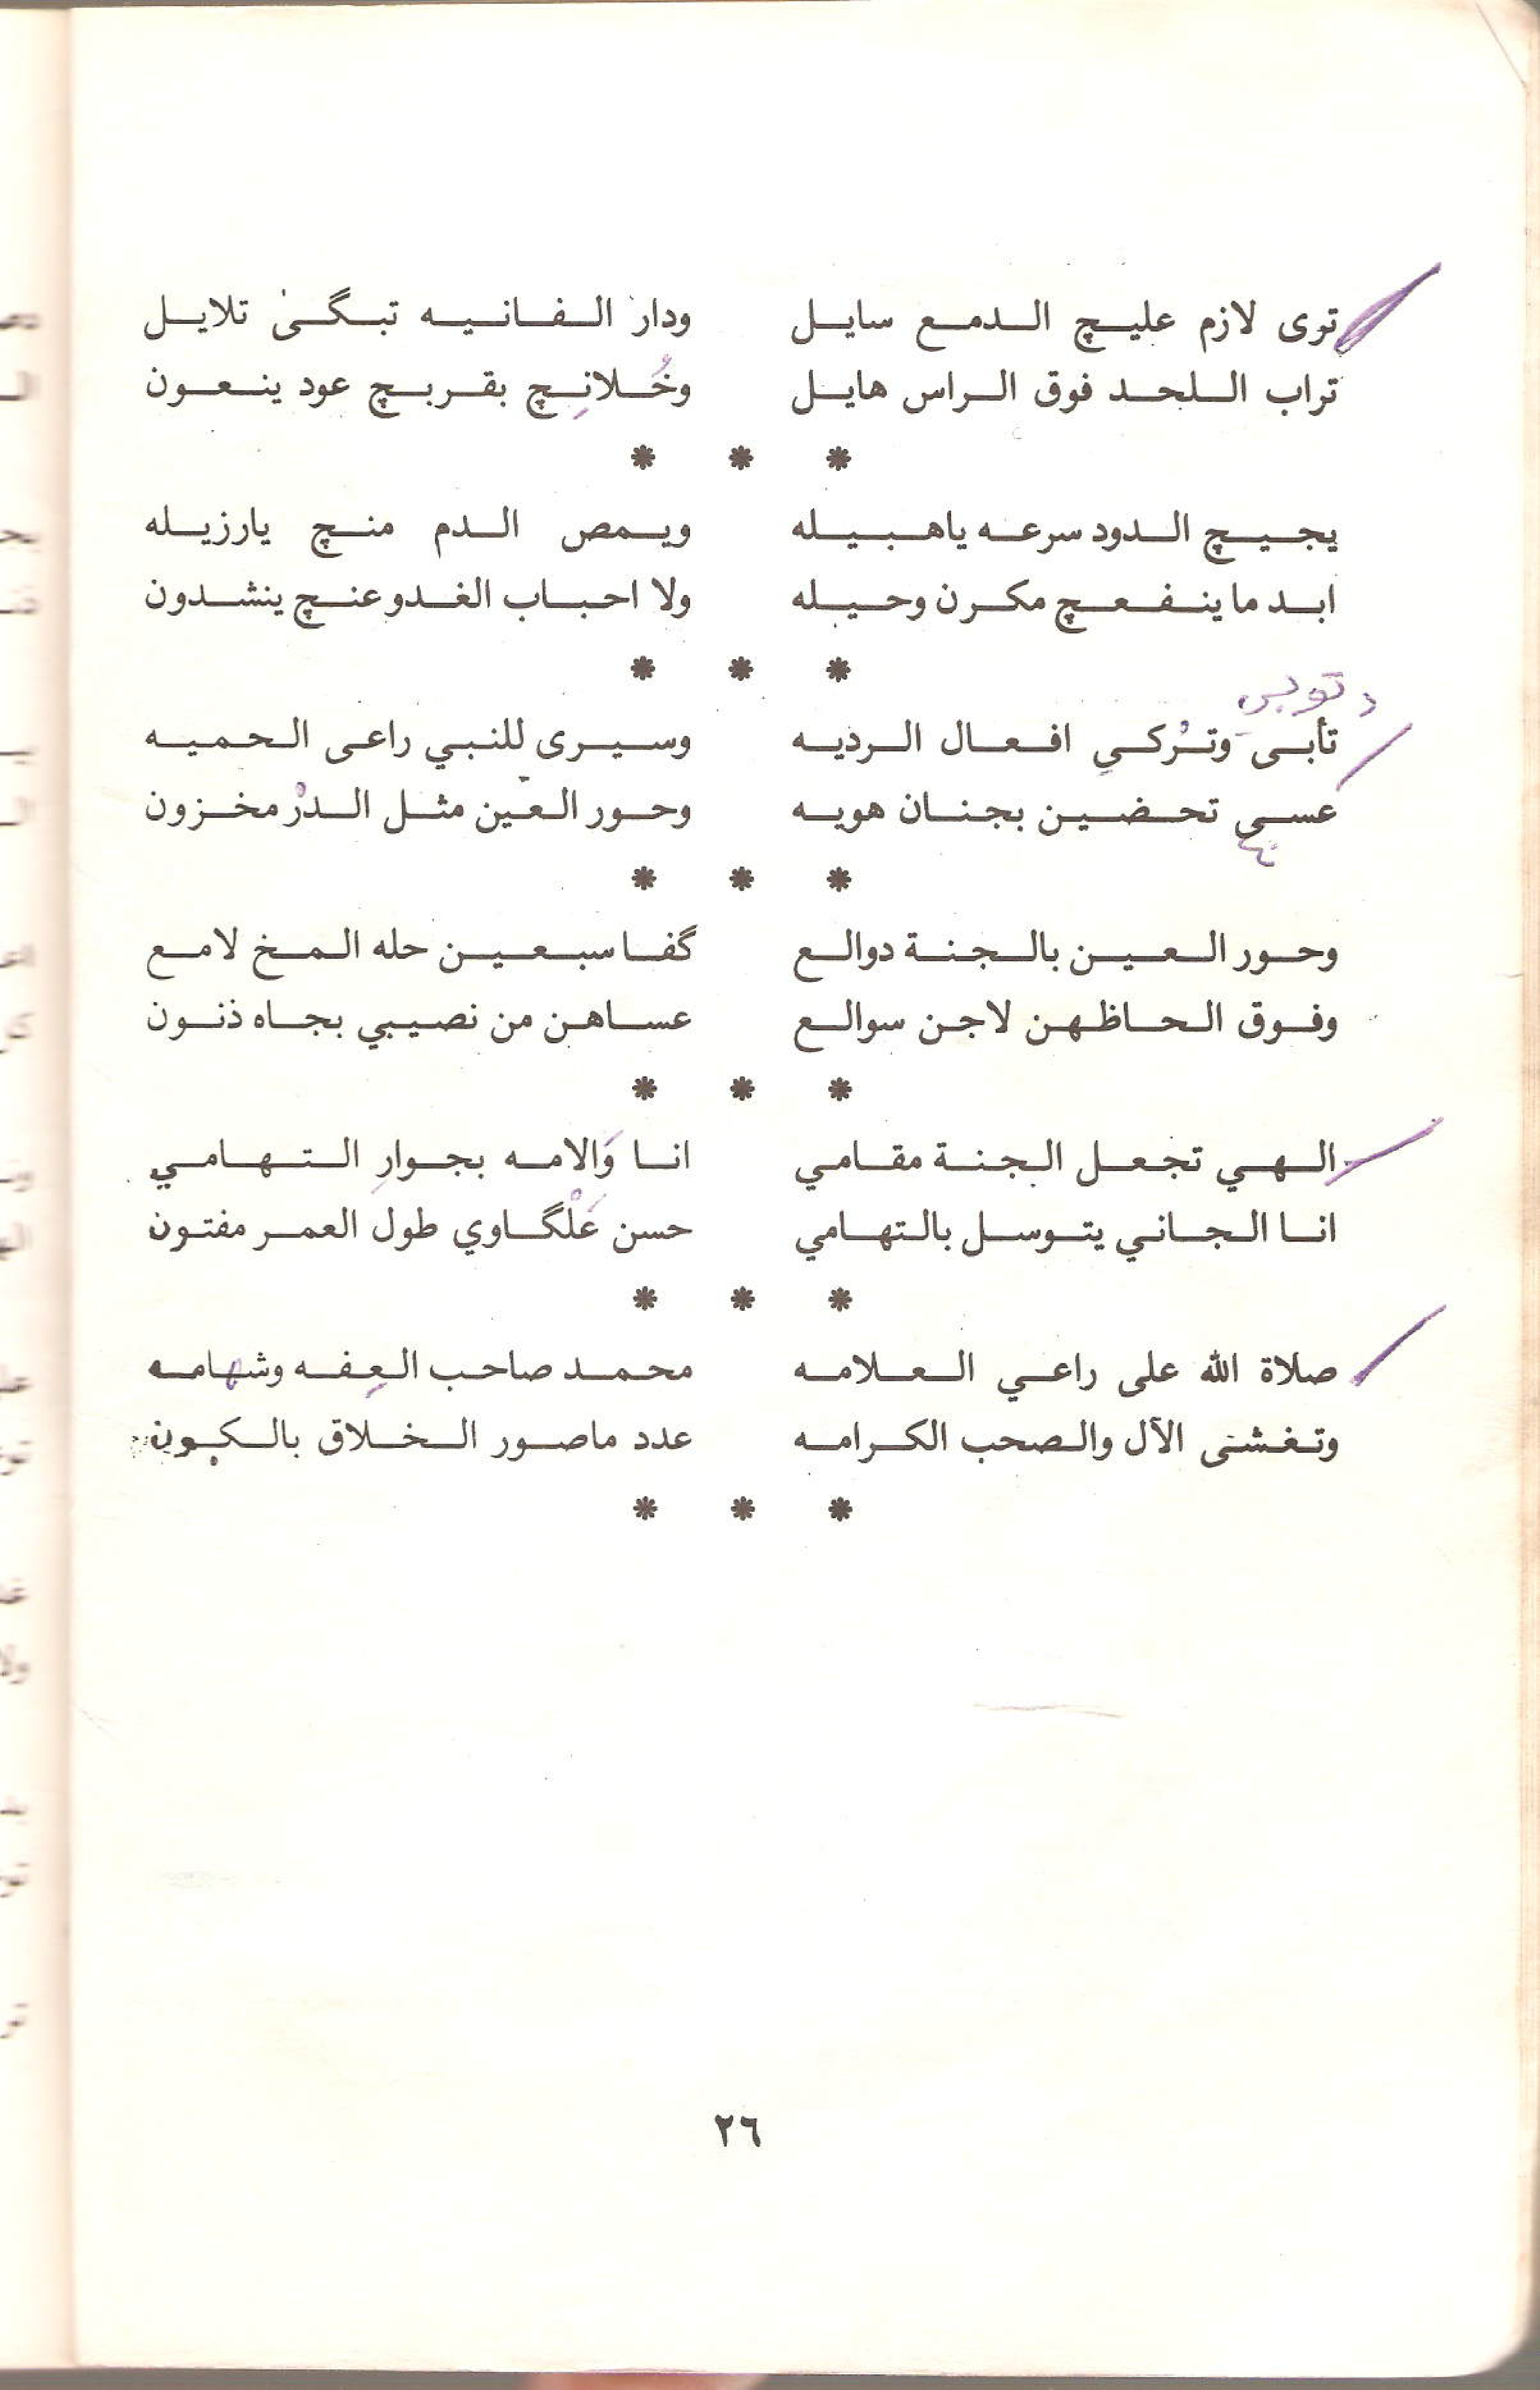 ترى لازم عليچ الدمع سايل ودار الفانيه تبگى تلايل
تراب اللحد فوق الراس هايل وخُلانِچ بقربچ عود ينعون
* * *
يجيچ الدود سرعه ياهبيله ويمص الدم منچ يارزيله
ابد ماينفعچ مكرن وحيله ولا احباب الغدو عنچ ينشدون
* * *
توبي
تأبى وتْركي افعال الرديه وسيرى للنبي راعى الحميه
عسى تحضين بجنان هويه وحور العين مثل الدرْ مخزون
* * *
وحور العين بالجنة دوالع گفا سبعين حله المخ لامع
وفوق الحاظهن لاجن سوالع عساهن من نصيبي بجاه ذنون
* * *
الهي تجعل الجنة مقامي انا وَالامه بجوارِ التهامي
انا الجاني يتوسل بالتهامي حسن عَلْگاوي طول العمر مفتون
* * *
صلاة الله على راعي العلامه محمد صاحب العِفه وشهامه
وتغشى الآل والصحب الكرامه عدد ماصور الخلاق بالكون
* * *
٢٦